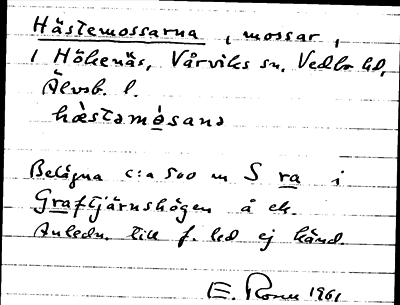 Hästemossarna, mossar,
i Hökenäs, Vårviks sn, Vedbo hd,
Älvsb. l.
hæ̀stəmòsanə
Belägna c:a 500 m S ra i
Graftjärnshögen å ek.
Anledn. till f. led ej känd.
E. 1961